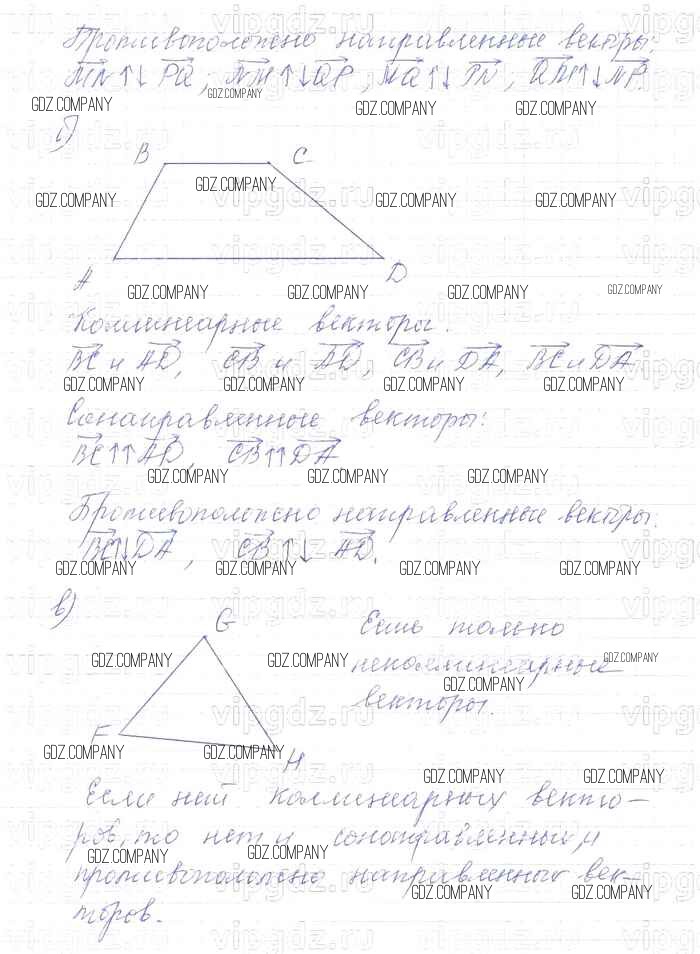 Противоположно направленные векторы:
MN↑↓PQ, NM↑↓QP, MQ↑↓PN, QM↑↓NP.
GDZ.COMPANY GDZ.COMPANY GDZ.COMPANY GDZ.COMPANY
vipgdz.ru
B C
GDZ.COMPANY GDZ.COMPANY GDZ.COMPANY GDZ.COMPANY
vipgdz.ru
A D
GDZ.COMPANY GDZ.COMPANY GDZ.COMPANY GDZ.COMPANY
Коллинеарные векторы:
BC и AD, CB и AD, CB и DA, BC и DA
GDZ.COMPANY GDZ.COMPANY GDZ.COMPANY GDZ.COMPANY
Сонаправленные векторы:
BC↑↑AD, CB↑↑DA
GDZ.COMPANY GDZ.COMPANY GDZ.COMPANY
Противоположно направленные векторы:
BC↑↓DA, CB↑↓AD.
GDZ.COMPANY GDZ.COMPANY GDZ.COMPANY GDZ.COMPANY
в)
G
Есть только
GDZ.COMPANY GDZ.COMPANY неколлинеарные GDZ.COMPANY
GDZ.COMPANY
векторы.
F
H
GDZ.COMPANY GDZ.COMPANY
GDZ.COMPANY GDZ.COMPANY
Если нет коллинеарных векто-
ров, то нет и сонаправленных, и
GDZ.COMPANY GDZ.COMPANY
противоположно направленных век-
GDZ.COMPANY GDZ.COMPANY
торов.
vipgdz.ru